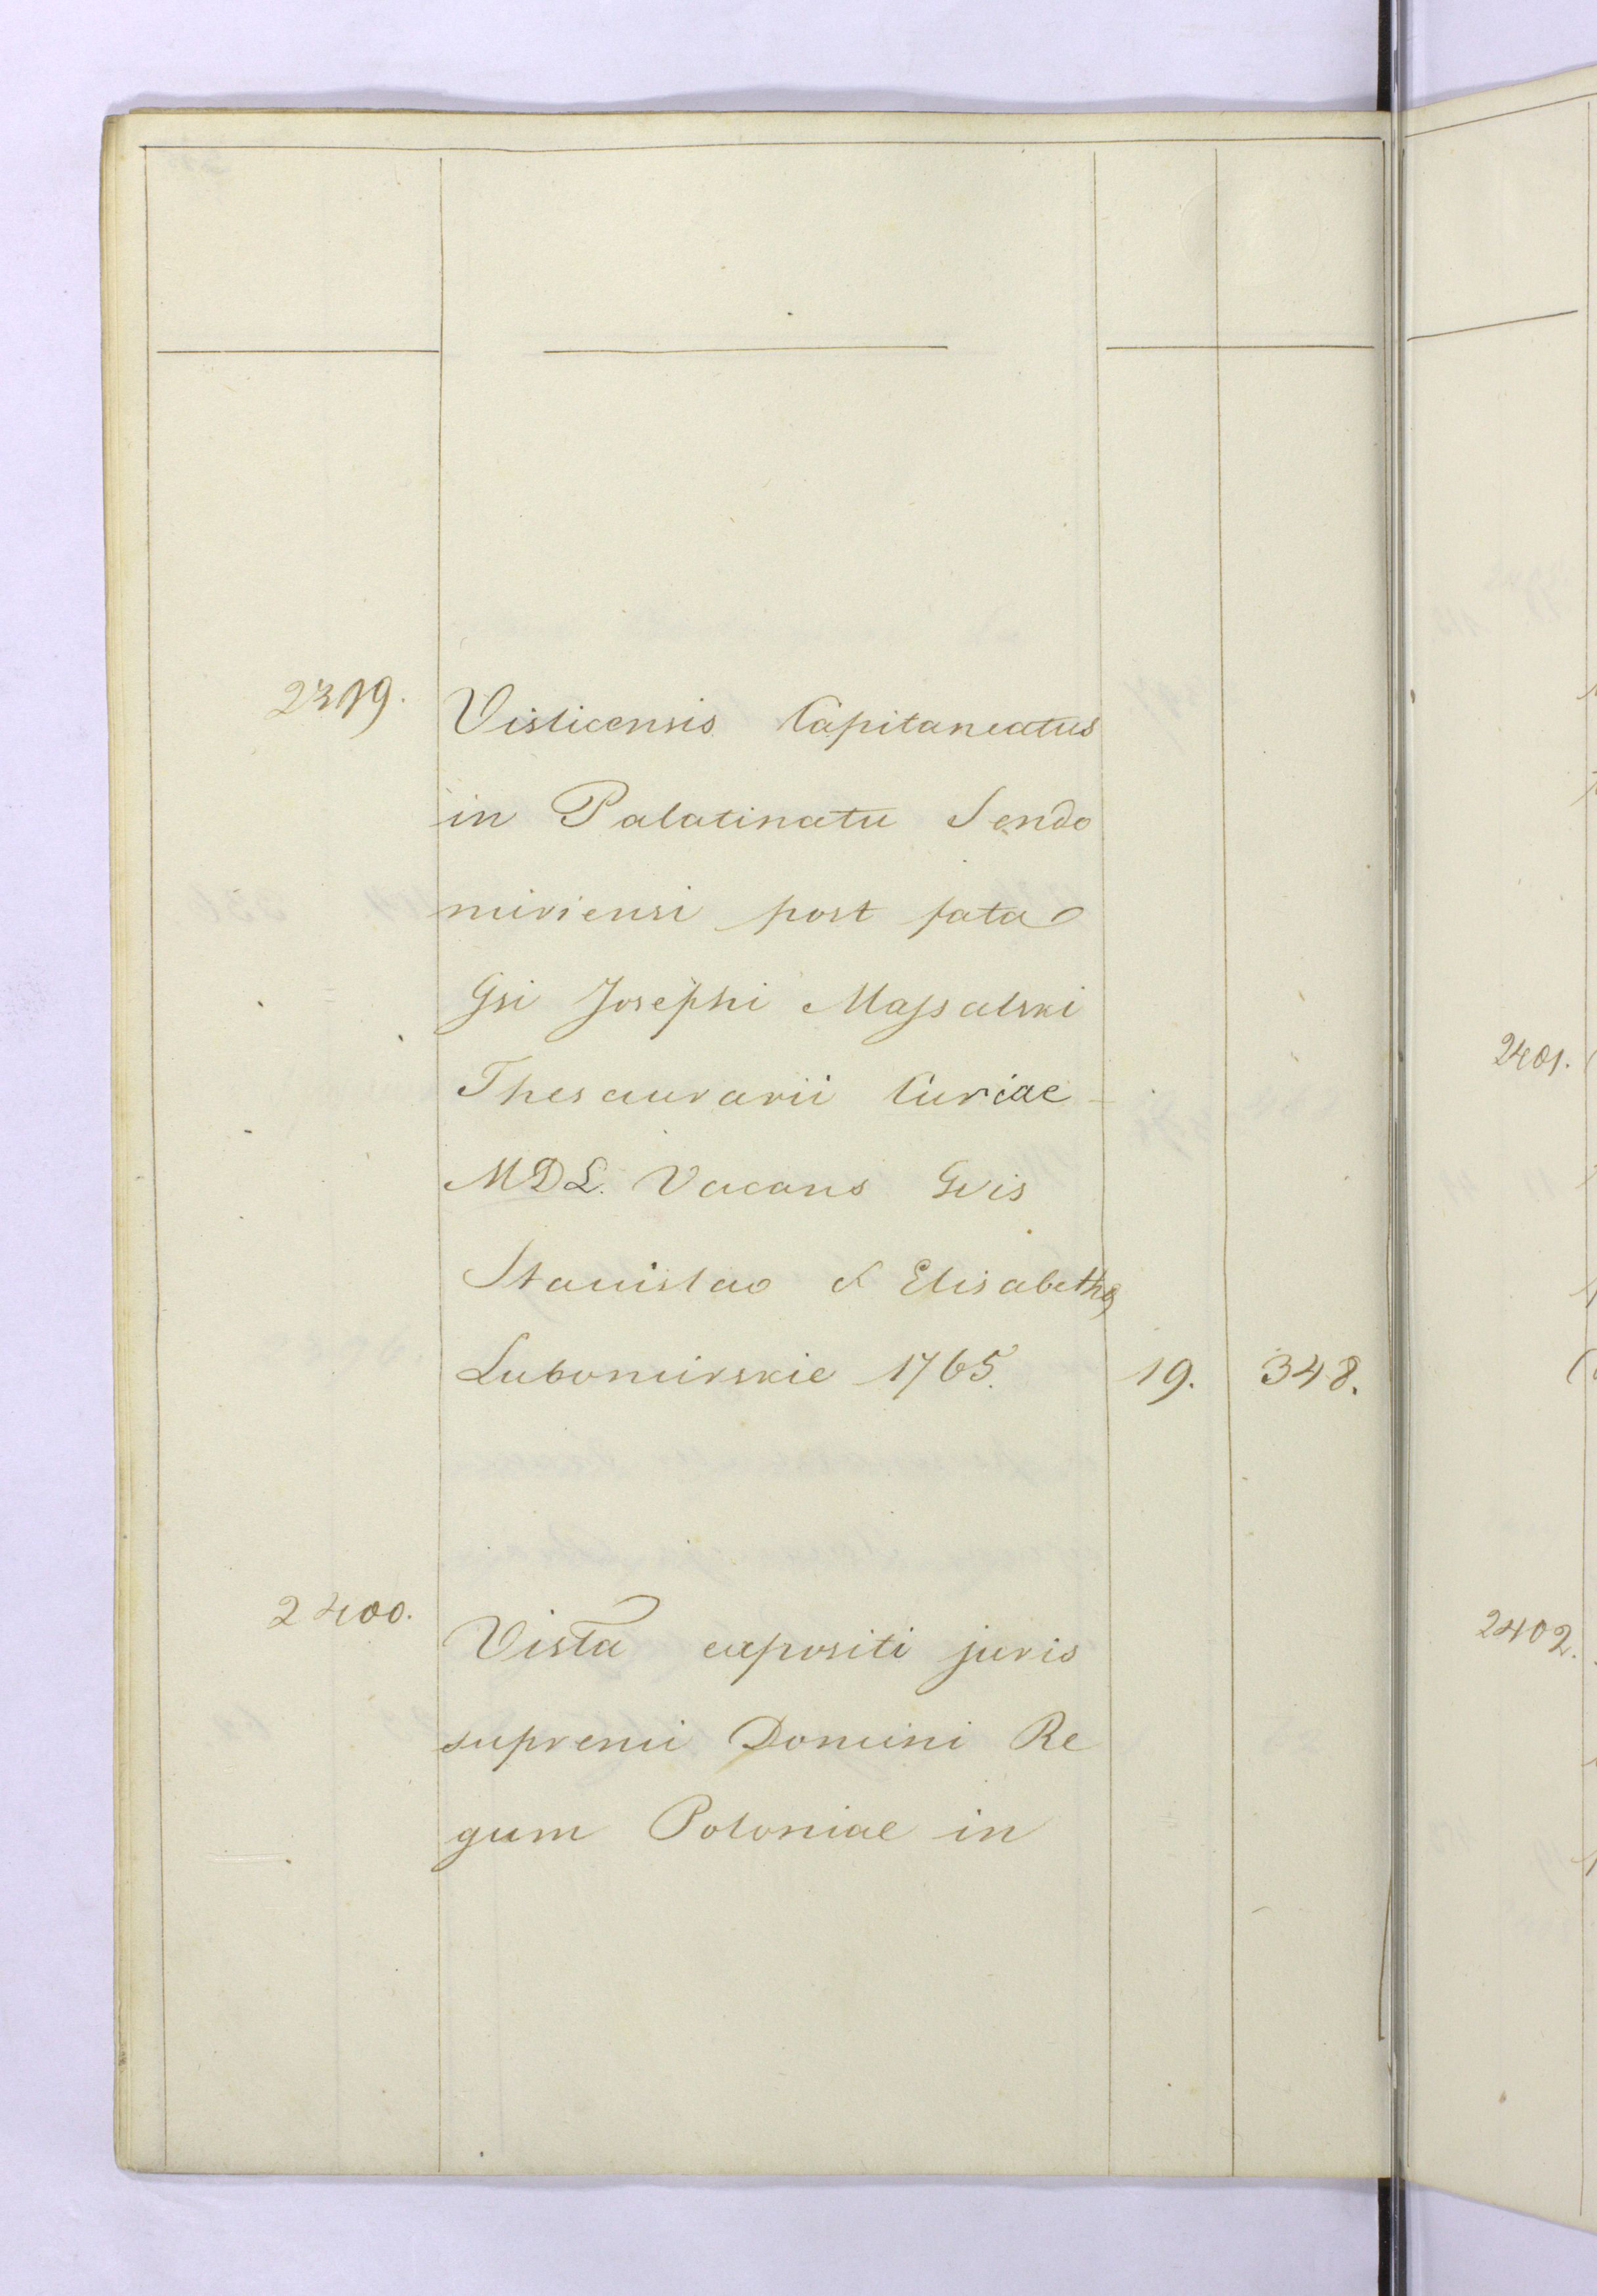 2399.
Vislicensis Capitaneatus
in Palatinatu Sendo
miriensi post fata
Gsi Josephi Massalski
Thesaurarii Curiae
MDL. Vacans Gvis
Stanislao & Elisabethæ
Lubomirskie 1765. 19. 348.
2400.
Vista expositi juris
supremi Domini Re
gum Poloniae in
2401.
2402.